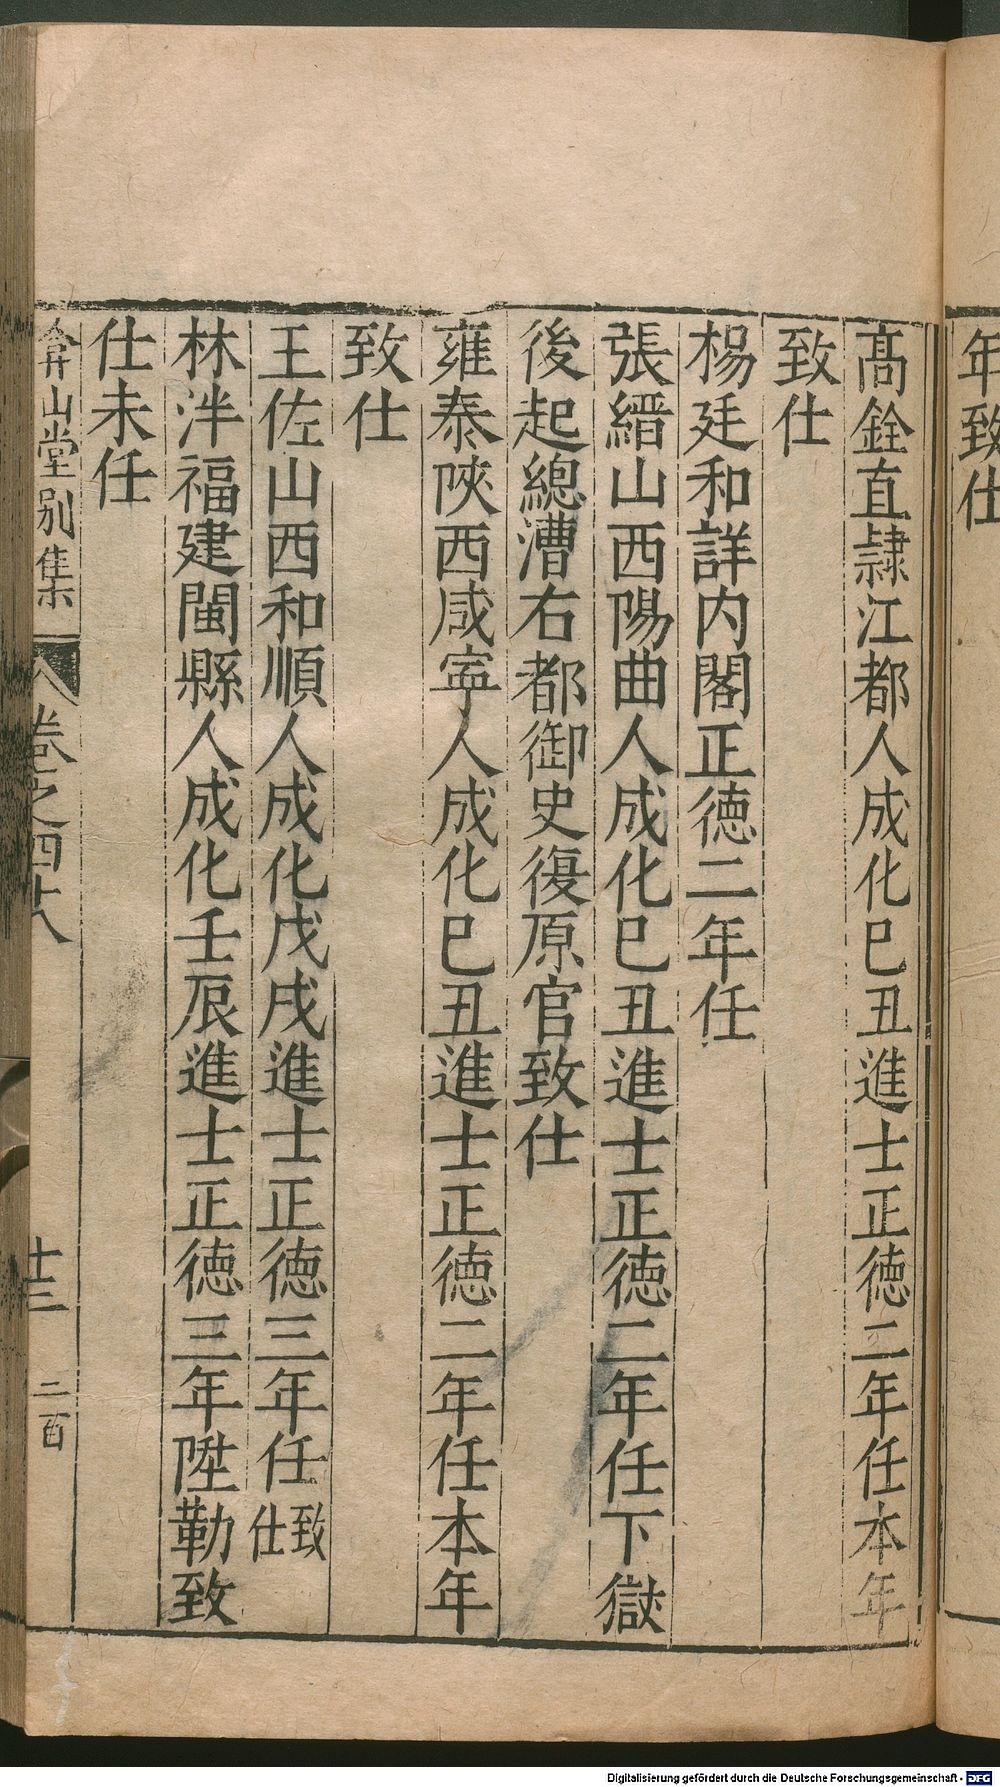 年致仕
髙銓直隷江都人成化巳丑進士正徳二年任本年
致仕
楊廷和詳内閣正徳二年任
張縉山西陽曲人成化巳丑進士正徳二年任下獄
後起總漕右都御史復原官致仕
雍泰陜西咸寧人成化巳丑進士正徳二年任本年
致仕
王佐山西和順人成化戊戌進士正徳三年任致仕
林泮福建閩縣人成化壬辰進士正徳三年陞勒致
仕未任
弇山堂别集 卷之四十八 十三 二百
Digitalisierung gefördert durch die Deutsche Forschungsgemeinschaft - DFG